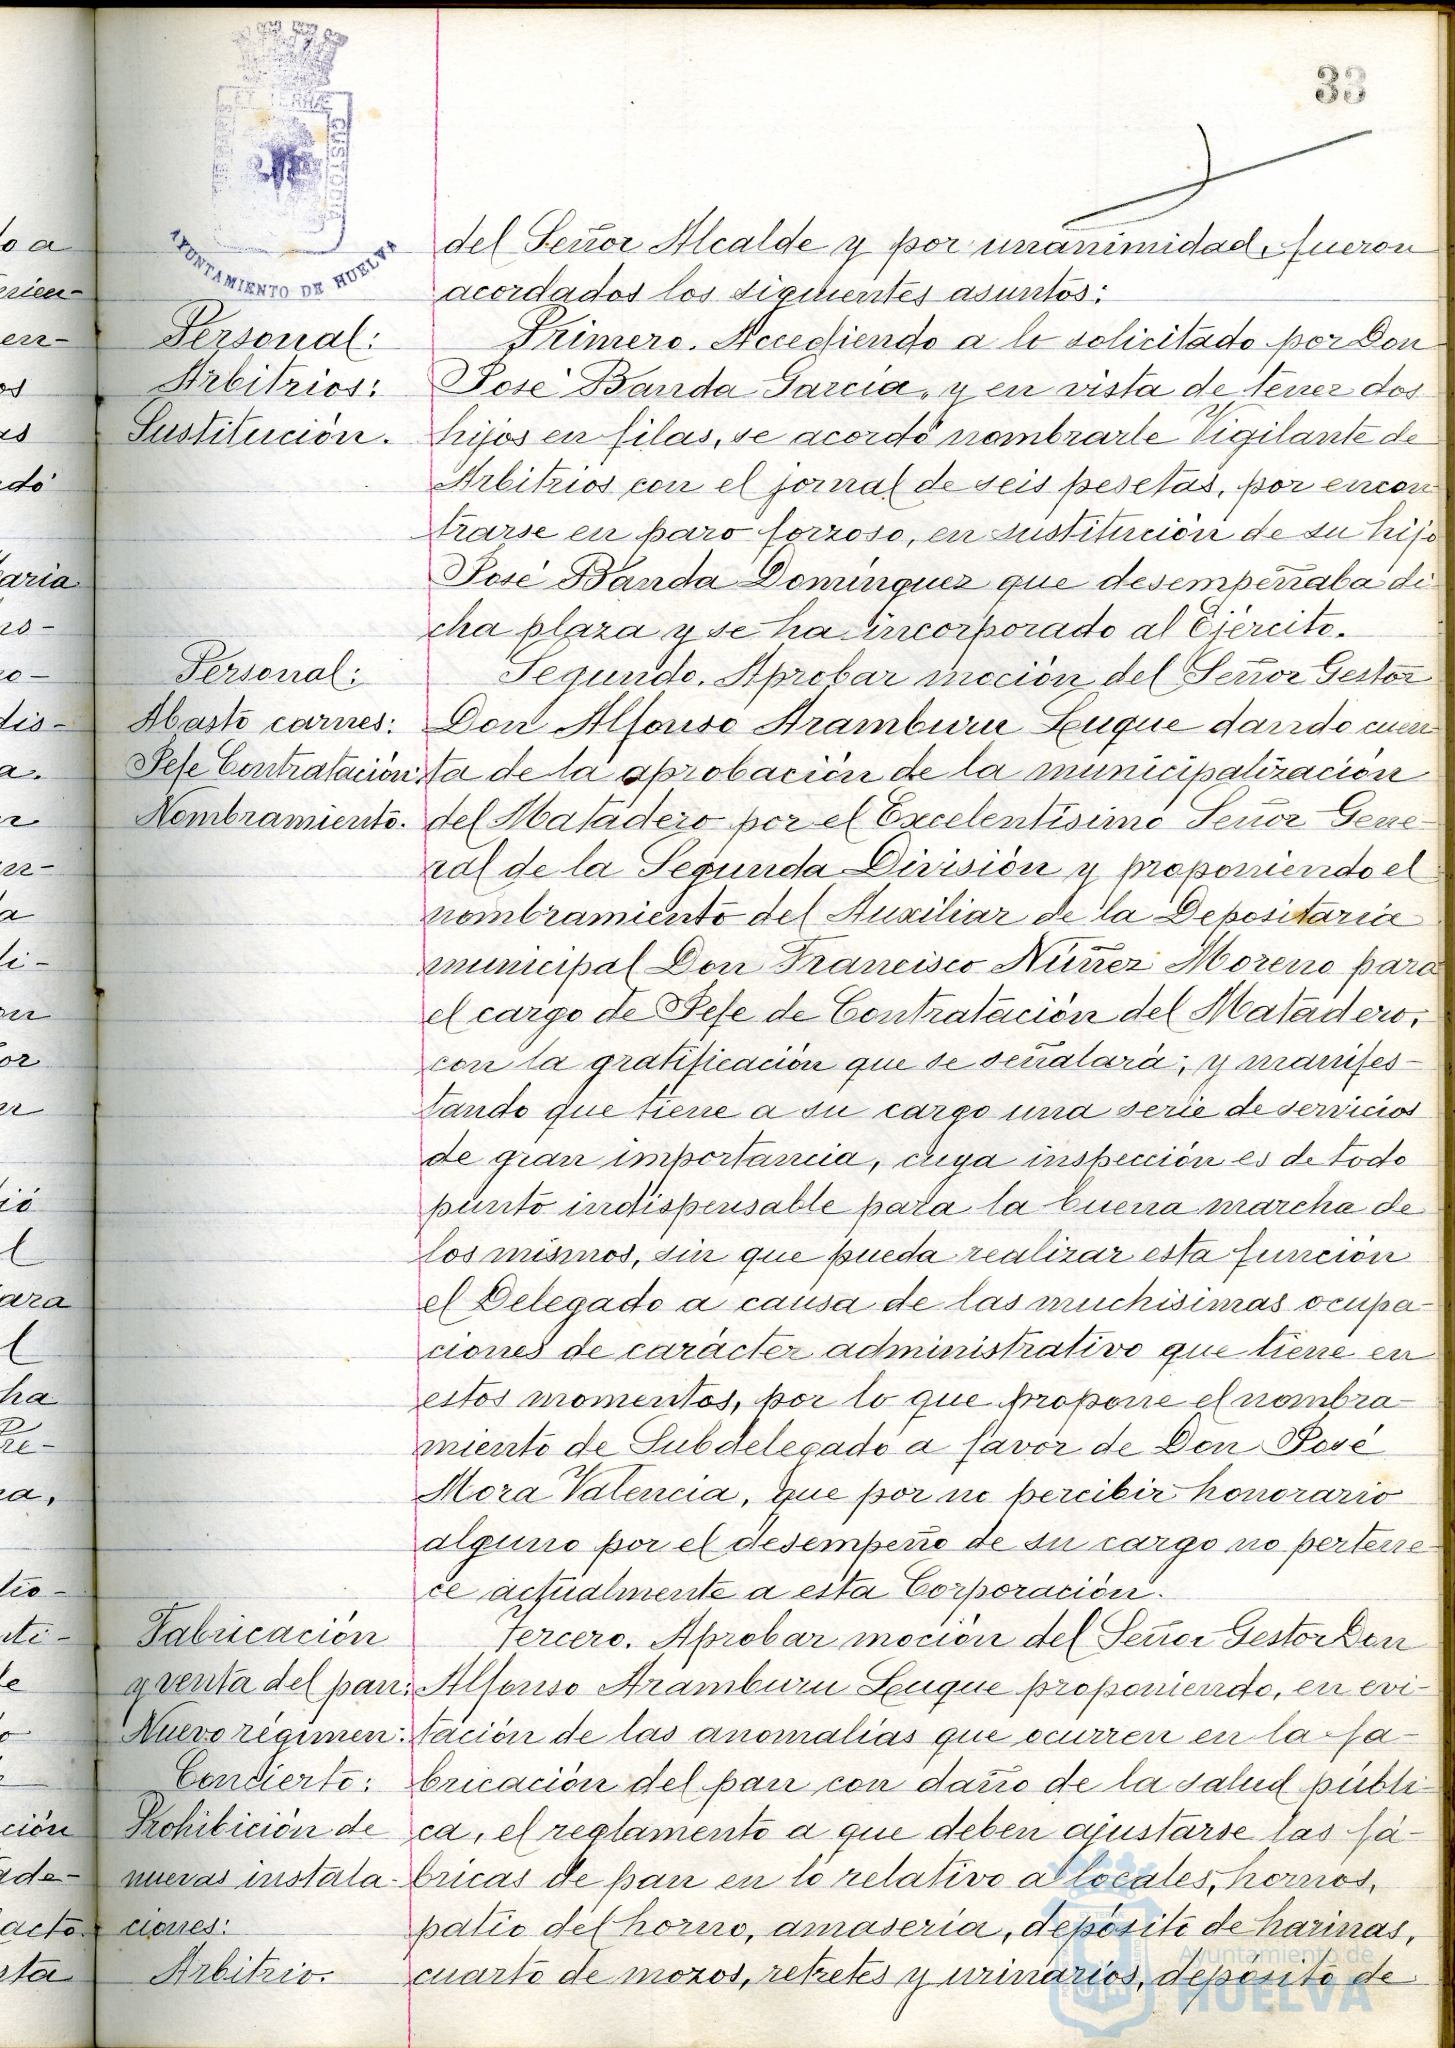 33
PORTUS MARIS
ET TERRÆ
CUSTODIA
AYUNTAMIENTO DE HUELVA
del Señor Alcalde y por unanimidad, fueron
acordados los siguientes asuntos:
Personal:
Arbitrios:
Sustitución.
Primero. Accediendo a lo solicitado por Don
José Banda García, y en vista de tener dos
hijos en filas, se acordó nombrarle Vigilante de
Arbitrios con el jornal de seis pesetas, por encon
trarse en paro forzoso, en sustitución de su hijo
José Banda Domínguez que desempeñaba di
cha plaza y se ha incorporado al Ejército.
Personal:
Abasto carnes:
Jefe Contratación:
Nombramiento.
Segundo. Aprobar moción del Señor Gestor
Don Alfonso Aramburu Luque dando cuen
ta de la aprobación de la municipalización
del Matadero por el Excelentísimo Señor Gene-
ral de la Segunda División y proponiendo el
nombramiento del Auxiliar de la Depositaría
municipal Don Francisco Núñez Moreno para
el cargo de Jefe de Contratación del Matadero,
con la gratificación que se señalará; y manifes-
tando que tiene a su cargo una serie de servicios
de gran importancia, cuya inspección es de todo
punto indispensable para la buena marcha de
los mismos, sin que pueda realizar esta función
el Delegado a causa de las muchísimas ocupa-
ciones de carácter administrativo que tiene en
estos momentos, por lo que propone el nombra-
miento de Subdelegado a favor de Don José
Mora Valencia, que por no percibir honorario
alguno por el desempeño de su cargo no pertene-
ce actualmente a esta Corporación.
Fabricación
y venta del pan:
Nuevo régimen:
Concierto:
Prohibición de
nuevas instala-
ciones:
Arbitrio.
Tercero. Aprobar moción del Señor Gestor Don
Alfonso Aramburu Luque proponiendo, en evi-
tación de las anomalías que ocurren en la fa-
bricación del pan con daño de la salud públi-
ca, el reglamento a que deben ajustarse las fá-
bricas de pan en lo relativo a locales, hornos,
patio del horno, amasería, depósito de harinas,
cuarto de mozos, retretes y urinarios, depósito de
Ayuntamiento de
HUELVA